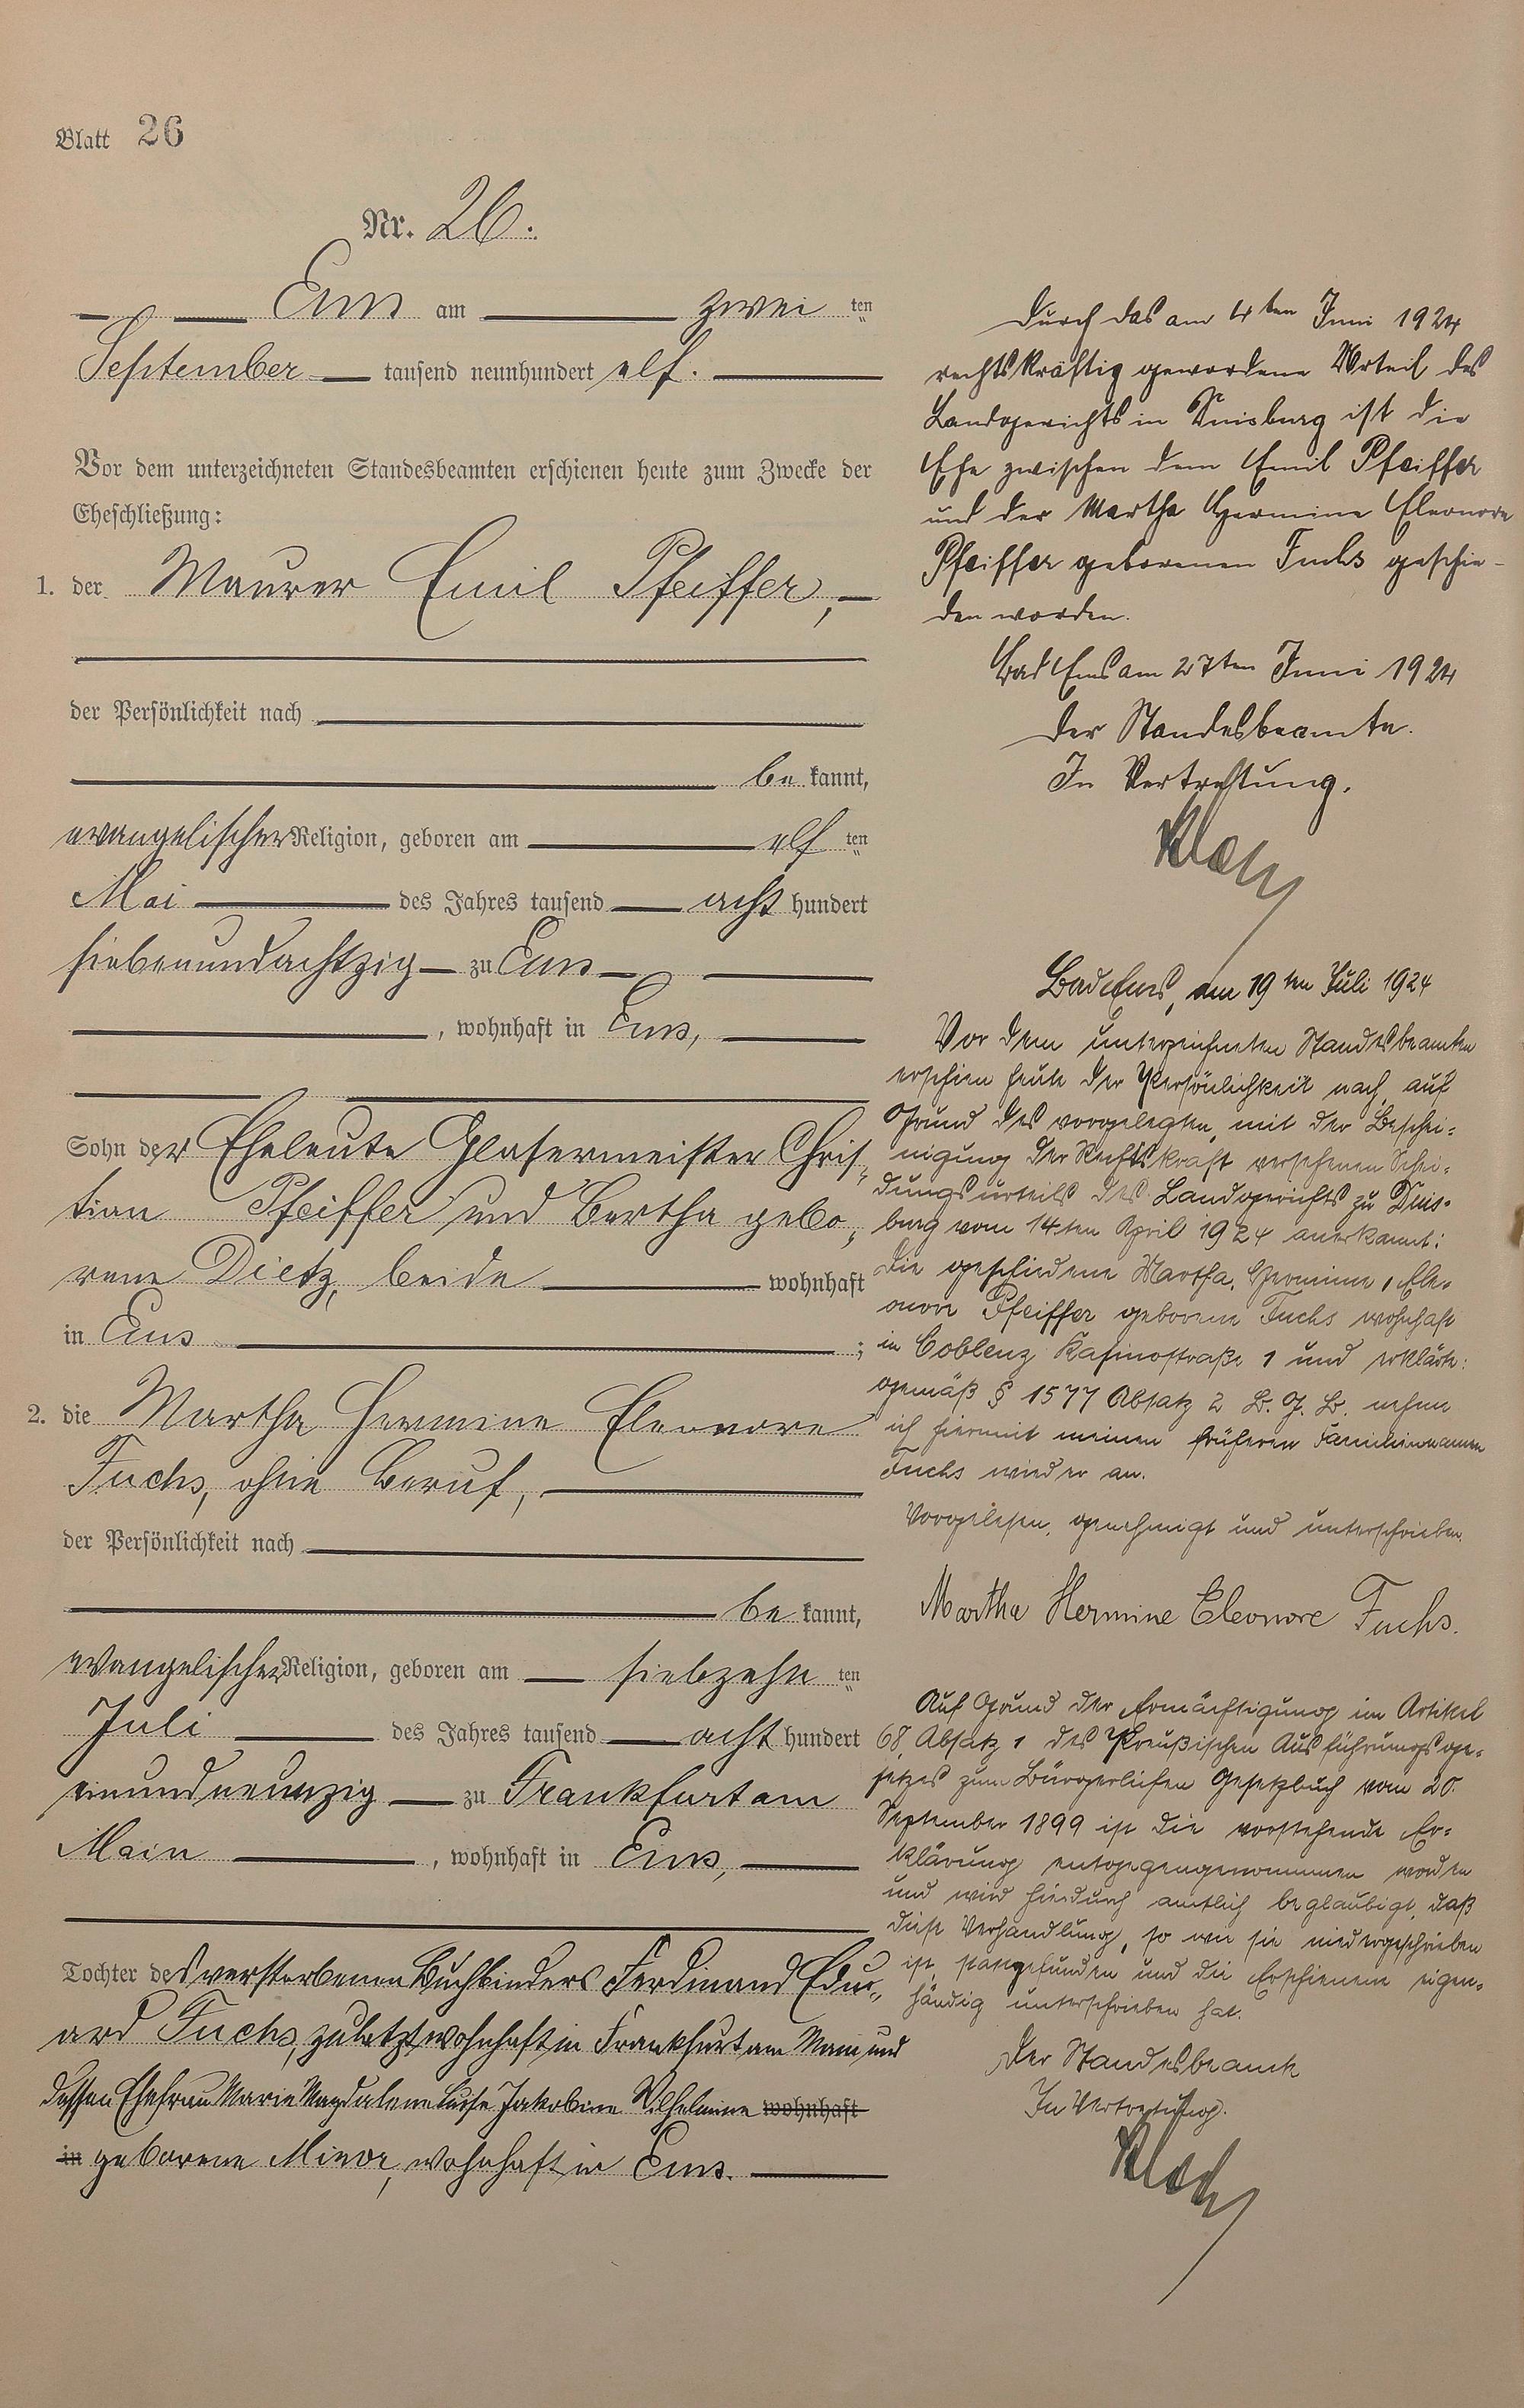 Blatt 26
Nr. 26.
Ems am zwei ten
September tausend neunhundert elf.
Vor dem unterzeichneten Standesbeamten erschienen heute zum Zwecke der
Eheschließung:
1. der Maurer Emil Pfeiffer,
der Persönlichkeit nach
be kannt,
evangelischer Religion, geboren am elf ten
Mai des Jahres tausend acht hundert
siebenundachtzig zu Ems
, wohnhaft in Ems,
Sohn der Eheleute Glasermeister Chris„
tian Pfeiffer und Bertha gebo„
rene Dietz, beide wohnhaft
in Ems ;
2. die Martha Hermine Eleonore
Fuchs, ohne Beruf,
der Persönlichkeit nach
be kannt,
evangelischer Religion, geboren am siebzehn ten
Juli des Jahres tausend acht hundert
einundneunzig zu Frankfurt am
Main , wohnhaft in Ems,
Tochter des verstorbenen Buchbinders Ferdinand Edu„
ard Fuchs, zuletzt wohnhaft in Frankfurt am Main und
dessen Ehefrau Marie Magdalene Luise Jakobine Wilhelmine wohnhaft
in geborene Minor, wohnhaft in Ems.
Durch das am 4ten Juni 1924
rechtskräftig gewordene Urteil des
Landgerichts in Duisburg ist die
Ehe zwischen dem Emil Pfeiffer
und der Martha Hermine Eleonore
Pfeiffer geborenen Fuchs geschie-
den worden.
Bad Ems am 27ten Juni 1924
Der Standesbeamte.
In Vertretung.
Bad Ems, am 19ten Juli 1924
Vor dem unterzeichneten Standesbeamten
erschien heute der Persönlichkeit nach, auf
Grund des vorgelegten, mit der Beschei=
nigung der Rechtskraft versehenen Schei=
dungsurteils des Landgerichts zu Duis=
burg vom 14ten April 1924 anerkannt:
Die geschiedene Martha, Hermine, Ele=
onore Pfeiffer geborene Fuchs wohnhaft
in Coblenz Kasinostraße 1 und erklärte:
gemäß § 1577 Absatz 2 B. G. B. nehme
ich hiermit meinen früheren Familiennamen
Fuchs wieder an.
Vorgelesen, genehmigt und unterschrieben.
Martha Hermine Eleonore Fuchs.
Auf Grund der Ermächtigung im Artikel
68, Absatz 1 des Preußischen Ausführungsge=
setzes zum Bürgerlichen Gesetzbuch vom 20.
September 1899 ist die vorstehende Er=
klärung entgegengenommen worden
und wird hierdurch amtlich beglaubigt, daß
diese Verhandlung, so wie sie niedergeschrieben
ist, stattgefunden und die Erschienene eigen=
händig unterschrieben hat.
Der Standesbeamte
In Vertretung.